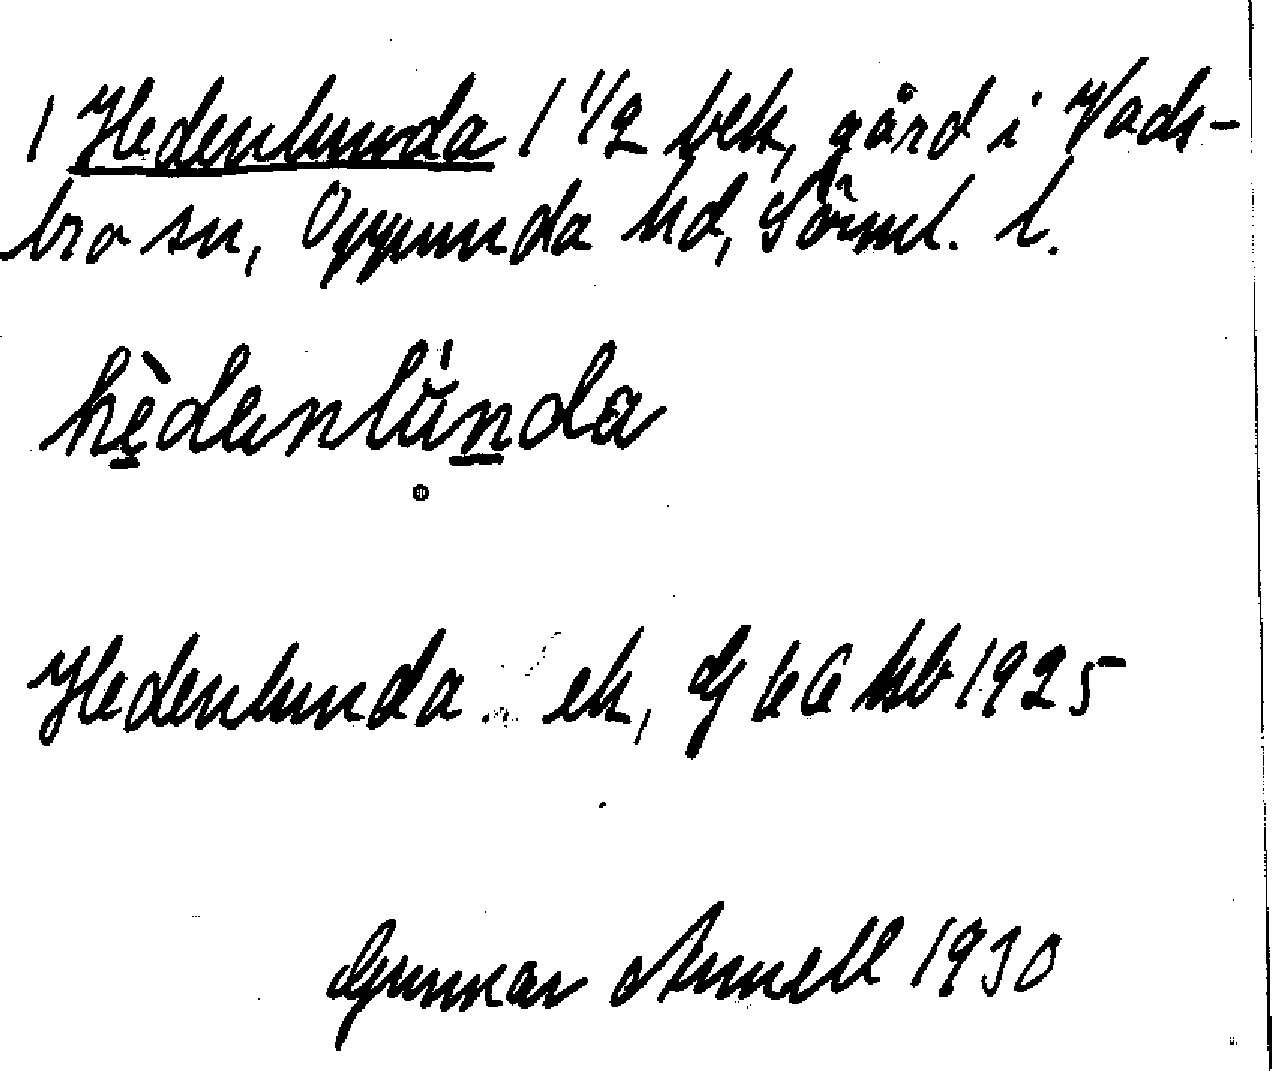 1 Hedenlunda 1 1/2 bek, gård i Vads-
bro sn, Oppunda hd, Söml. l.
hèdenlúnda
Hedenlunda ek, Gj 66 hb 1925
Gunnar Arnell 1930